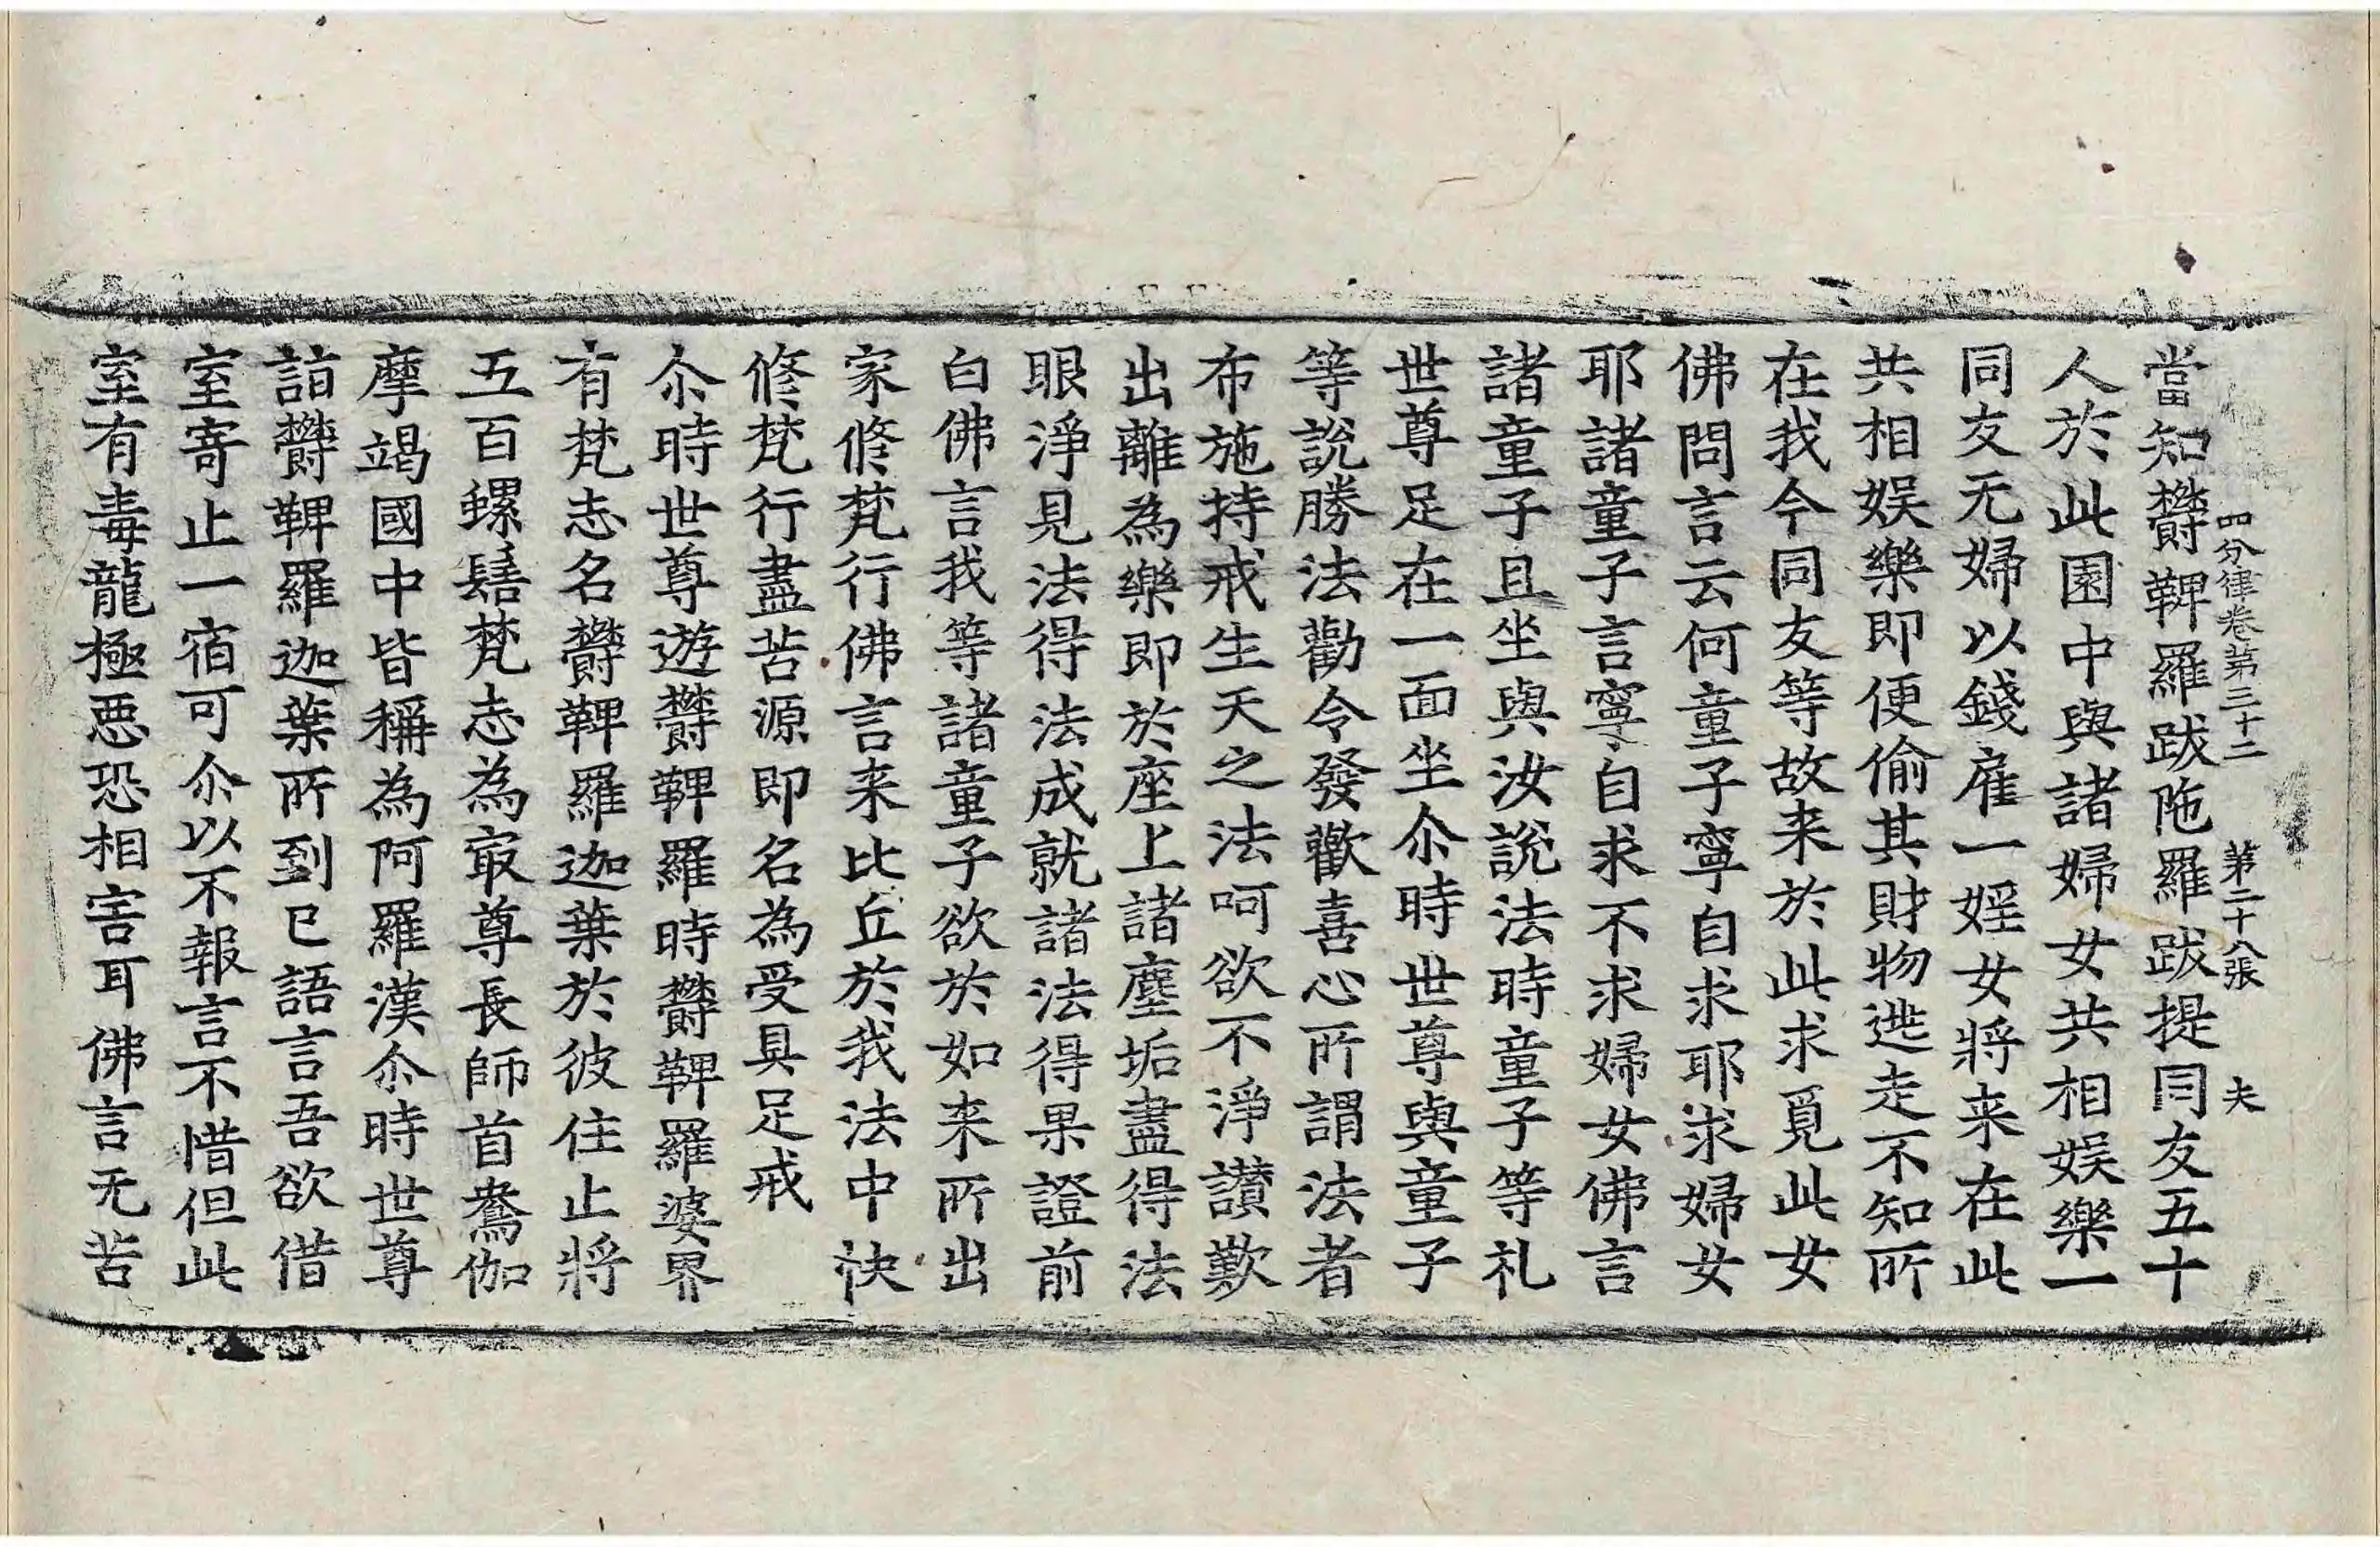 四分律卷第三十二　第二十八張　夫
當知欝鞞羅跋陁羅跋提同友五十
人於此園中與諸婦女共相娛樂一
同友无婦以錢雇一婬女將来在此
共相娛樂即便偷其財物逃走不知所
在我今同友等故来於此求覓此女
佛問言云何童子寧自求耶求婦女
耶諸童子言寧自求不求婦女佛言
諸童子且坐與汝說法時童子等礼
世尊足在一面坐尒時世尊與童子
等說勝法勸令發歡喜心所謂法者
布施持戒生天之法呵欲不淨讃歎
出離為樂即於座上諸塵垢盡得法
眼淨見法得法成就諸法得果證前
白佛言我等諸童子欲於如来所出
家修梵行佛言来比丘於我法中快
修梵行盡苦源即名為受具足戒
尒時世尊遊欝鞞羅時欝鞞羅婆界
有梵志名欝鞞羅迦葉於彼住止將
五百螺髻梵志為㝡尊長師首鴦伽
摩竭國中皆稱為阿羅漢尒時世尊
詣欝鞞羅迦葉所到已語言吾欲借
室寄止一宿可尒以不報言不惜但此
室有毒龍極惡恐相害耳佛言无苦